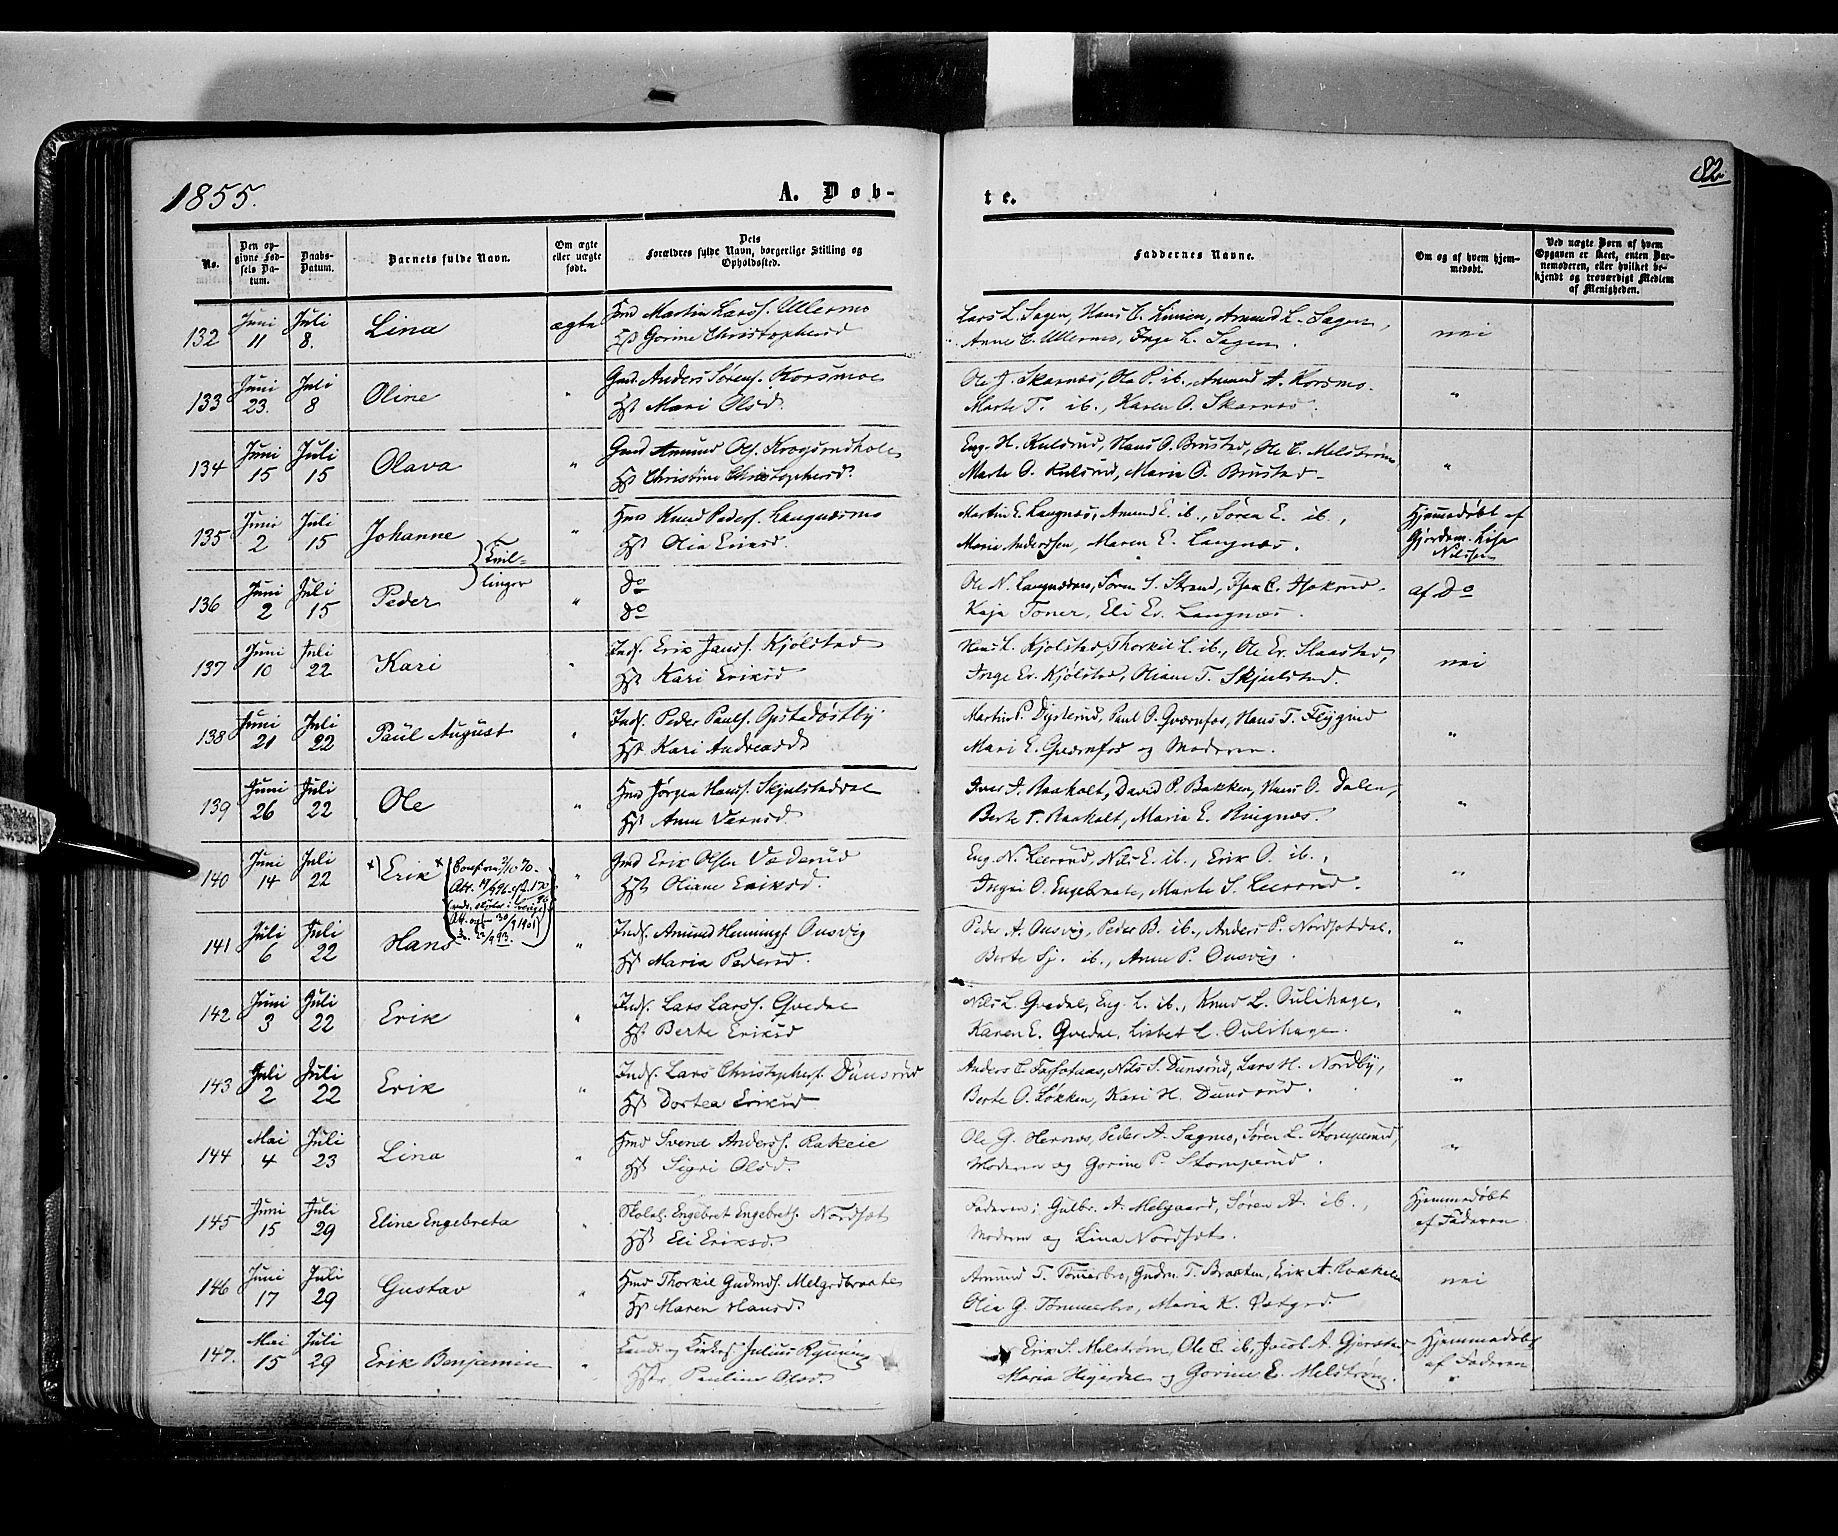 1855.
A. Døb-
te.
82
No.
Den op-
givne Fød-
sels Da-
tum.
Daabs-
Datum.
Barnets fulde Navn.
Om ægte
eller uægte
født.
Dets
Forældres fulde Navn, borgerlige Stilling og
Opholdssted.
Faddernes Navne.
Om og af hvem hjem-
medøbt.
Ved uægte Børn af hvem
Opgaven er skeet, enten Bar-
nemoderen, eller hvilket be-
kjendt og troværdigt Medlem
af Menigheden.
132 Juni 11 Juli 8. Lina ægte
Martin Larss. Ullermo
Gorine Christophersd
Lars L. Sagen, Hans C. Linnen, Amund L. Sagen,
Anne C. Ullermo, Inge L. Sagen.
nei
133 Juni 23. Juli 8 Oline "
Anders Sørens. Korsmoe
Mari Olsd.
Ole J. Skarnæs, Ole P. ib., Amund A. Korsmo.
Marte T. ib., Karen O. Skarnæs.
"
134 Juni 15 Juli 15 Olava "
Amund Ols. Krogsrudhole
Christine Christophersd.
Eng. H. Kulsrud, Hans O. Brustad, Ole C. Melstrøm
Marte O. Kulsrud, Maria O. Brustad
"
135 Juni 2 Juli 15 Johanne "
Knud Peders. Langnæsmo
Olia Eriksd
Martin E. Langnæs, Amund E. ib., Søren E. ib.,
Marie Anderssen, Maren E. Langnæs.
Hjemmedøbt af
Gjordem. Lise
Nilssen
Tvil-
linger
136 Juni 2 Juli 15 Peder "
Do
Do
Ole N. Langnæsen, Søren S. Strand,
Kaja Toner, Eli Er. Langnæs.
af Do
137 Juni 10 Juli 22 Kari "
Inds. Erik Jonss. Kjølstad
Kari Eriksd
Hans L. Kjølstad, Thorkil L. ib., Ole Er. Slaastad,
Inge Er. Kjølstad, Oliane T. Skjulstad.
nei
138 Juni 21 Juli 22 Paul August "
Inds. Peder Pauls. Opstadøstby
Kari Andreasd
Martin P. Dysterud, Paul O. Qværnfos, Hans T. Flygind
Mari E. Qværnfos og Moderen.
"
139 Juni 26 Juli 22 Ole "
Jørgen Hanss. Skjulstaddal
Anne Larsd.
Iver I. Raaholt, David P. Bakken, Hans O. Dalen,
Berte P. Raaholt, Maria E. Ringnæs.
"
140 Juni 14 Juli 22 Erik "
Erik Olsen Væderud
Oliane Eriksd.
Eng. N. Leerrud, Nils E. ib., Erik O. ib.,
Ingri O. Engebraate, Marte S. Leerrud.
"
141 Juli 6 Juli 22 Hans "
Inds. Amund Hennings. Ousvig
Maria Pedersd.
Peder A. Ousvig, Peder B. ib., Anders P. Nordsetdal.
Berte Sj. ib., Anne P. Ousvig.
"
142 Juni 3 Juli 22 Erik "
Inds. Lars Larss. Qvedne
Berte Eriksd
Nils L. Qvedne, Eng. L. ib., Knud L. Oulihage,
Karen E. Qvedne, Lisbet L. Oulihage.
"
143 Juli 2 Juli 22 Erik "
Inds. Lars Christophers. Dunsrud
Dortea Eriksd
Nils S. Dunsrud, Lars H. Nordby,
Berte O. Løkken, Kari H. Dunsrud.
"
144 Mai 4 Juli 23 Lina "
Svend Anderss. Rakeie
Sigri Olsd.
Ole G. Hernæs, Peder A. Sagmo, Søren L. Stomperud,
Moderen og Gorine P. Stomperud.
"
145 Juni 15 Juli 29 Eline Engebreta "
Skolel. Engebret Engebrets. Nordset
Eli Eriksd.
Faderen, Gulbr. A. Melgaard, Søren A. ib.,
Moderen og Lina Nordset.
Hjemmedøbt
af Faderen
146 Juni 17 Juli 29 Gustav "
Thorkil Gudmds. Melgrdbraate
Maren Hansd.
Amund T. Tømmerbro, Gudm. T. Braaten, Erik A.
Olia G. Tømmerbro, Maria K.
nei
147. Mai 15 Juli 29 Erik Benjamin "
Julius Ryning
Pauline Olsd.
Erik S. Melstrøm, Ole C. ib,
Maria og Gorine E. Melstrøm.
Hjemmedøbt
af Faderen
"